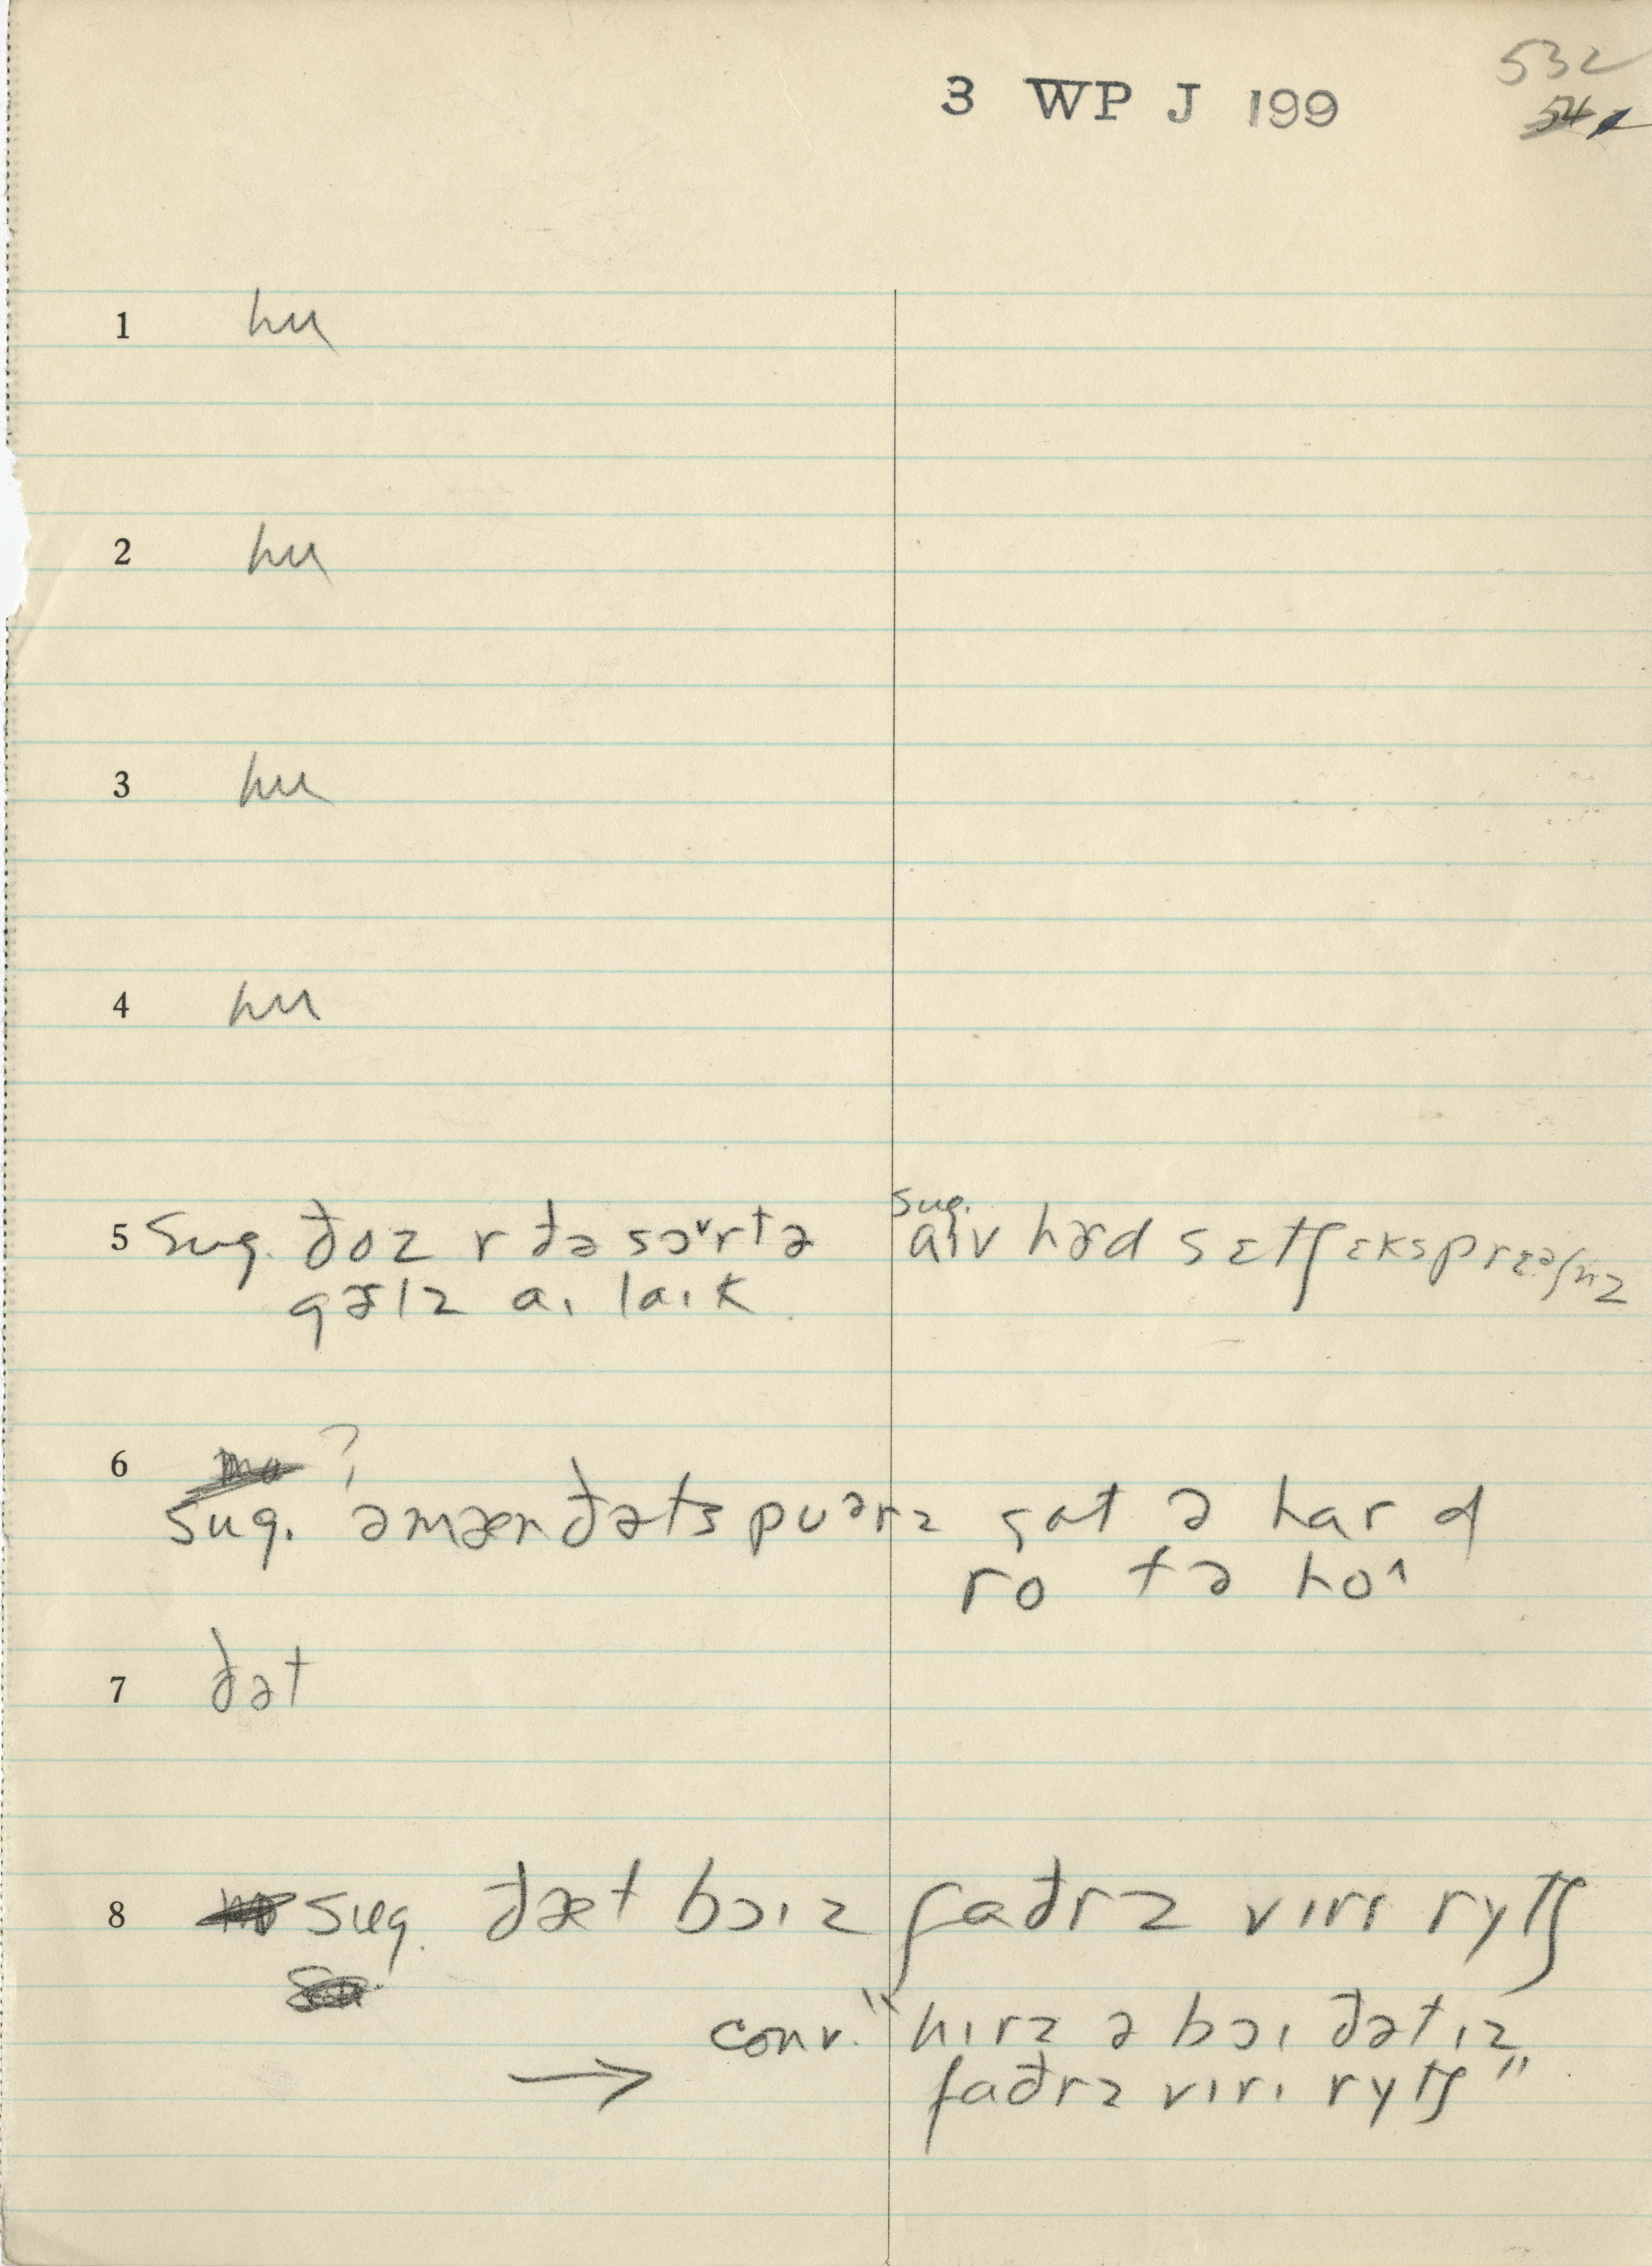 532
3 WP J 199
1 hu
2 hu
3 hu
4 hu
5 sug. ðoz r ðə sɔᵛrtə
gɚlz aɪ laɪk
sug.
aɪv hɚd sɛtʃ ɛksprɛəʃnz
6 ?
sug. əmæn ðəts puərz gat ə har d
ro tə ho^
7 ðət
8 sug. ðæt bɔɪz faðrz vɪrɪ rɪtʃ
conv. "hɪrz ə bɔɪ ðət ɪz
→ faðrz vɪrɪ rɪtʃ"